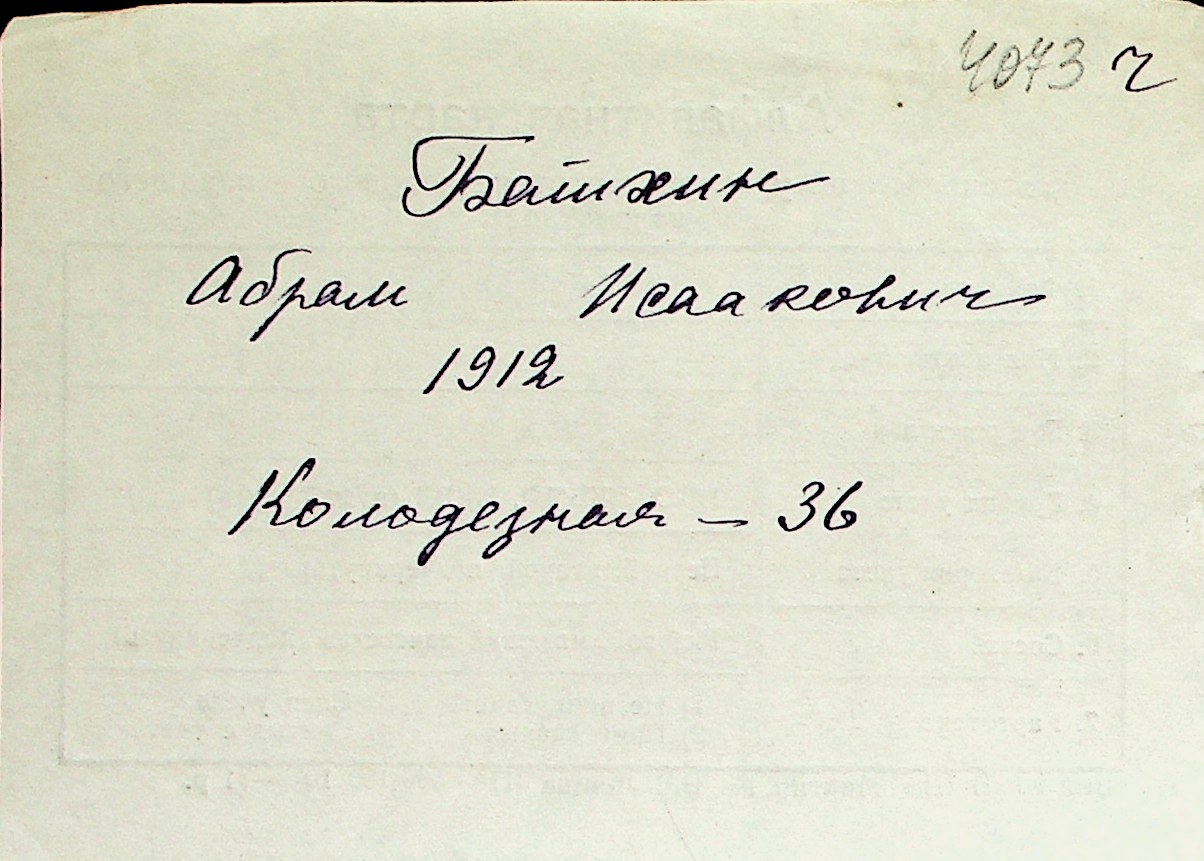 4073 ч
Батхин
Абрам Исаакович
1912
Колодезная – 36